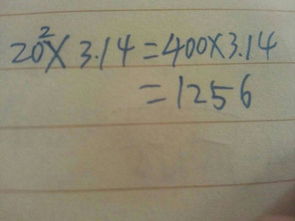 20²×3.14=400×3.14
=1256